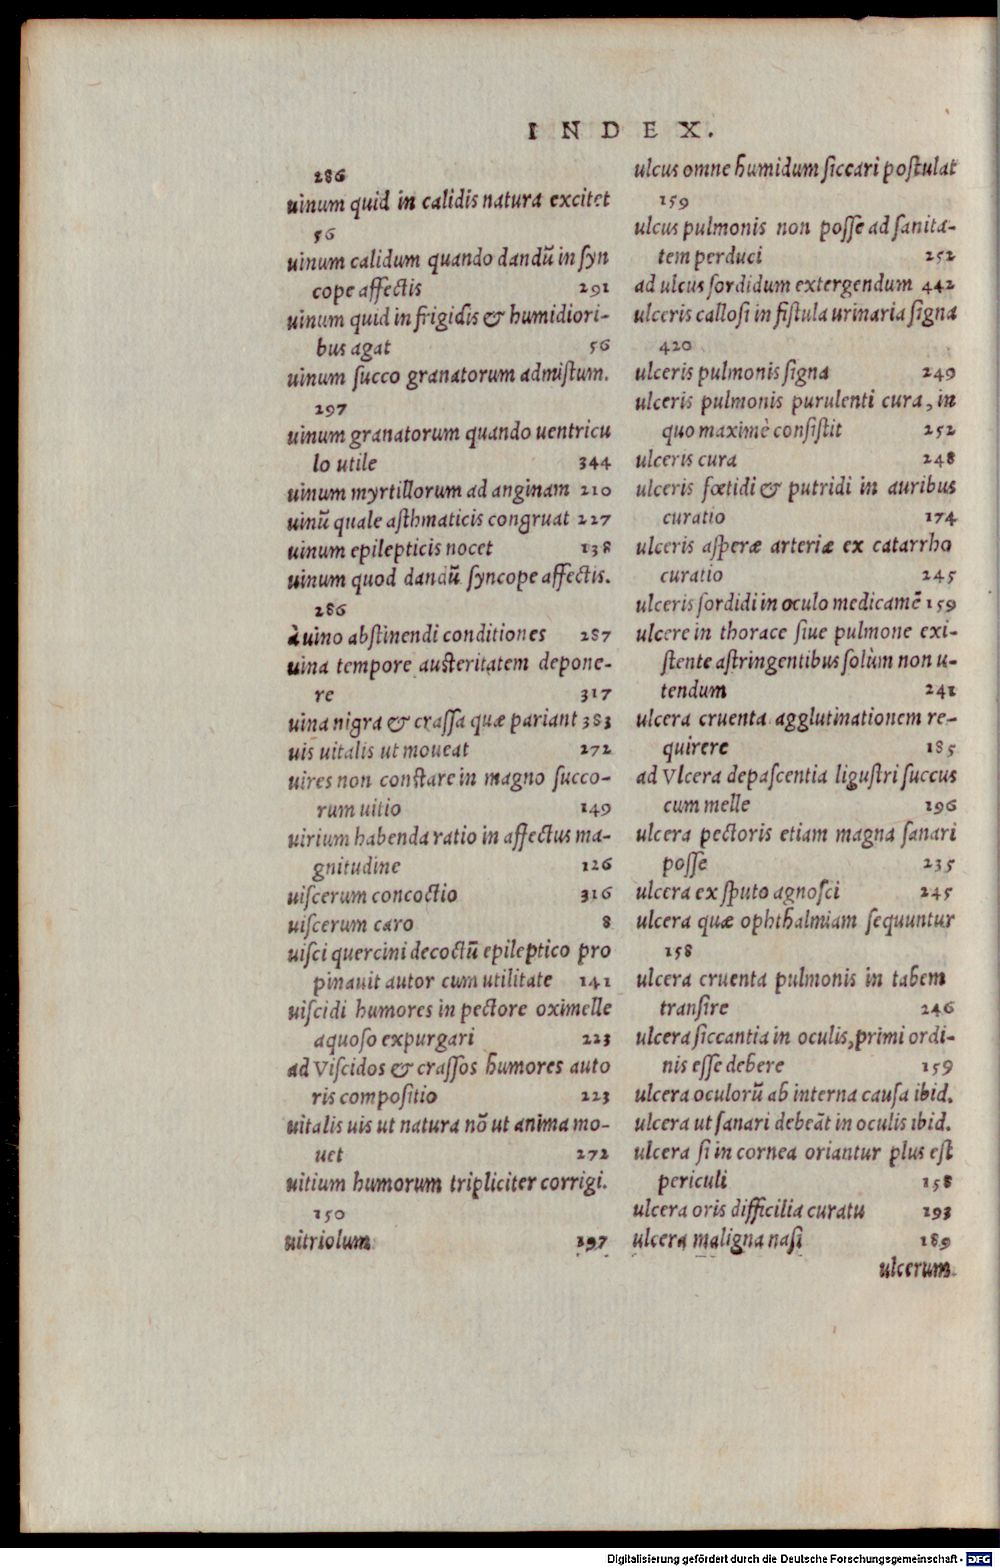 INDEX.
286
uinum quid in calidis natura excitet
56
uinum calidum quando dandũ in ſyn
cope affectis 291
uinum quid in frigidis & humidiori-
bus agat 56
uinum ſucco granatorum admiſtum.
297
uinum granatorum quando uentricu
lo utile 344
uinum myrtillorum ad anginam 210
uinũ quale aſthmaticis congruat 227
uinum epilepticis nocet 138
uinum quod dandũ ſyncope affectis.
286
à uino abſtinendi conditiones 287
uina tempore auſteritatem depone-
re 317
uina nigra & craſſa quæ pariant 383
uis uitalis ut moueat 272
uires non conſtare in magno ſucco-
rum uitio 149
uirium habenda ratio in affectus ma-
gnitudine 126
uiſcerum concoctio 316
uiſcerum caro 8
uiſci quercini decoctũ epileptico pro
pinauit autor cum utilitate 141
uiſcidi humores in pectore oximelle
aquoſo expurgari 223
ad Viſcidos & craſſos humores auto
ris compoſitio 223
uitalis uis ut natura nõ ut anima mo-
uet 272
uitium humorum tripliciter corrigi.
150
uitriolum 197
ulcus omne humidum ſiccari poſtulat
159
ulcus pulmonis non poſſe ad ſanita-
tem perduci 252
ad ulcus ſordidum extergendum 442
ulceris calloſi in fiſtula urinaria ſigna
420
ulceris pulmonis ſigna 249
ulceris pulmonis purulenti cura, in
quo maximè conſiſtit 252
ulceris cura 248
ulceris fœtidi & putridi in auribus
curatio 174
ulceris aſperæ arteriæ ex catarrho
curatio 245
ulceris ſordidi in oculo medicamẽ 159
ulcere in thorace ſiue pulmone exi-
ſtente aſtringentibus ſolùm non u-
tendum 241
ulcera cruenta agglutinationem re-
quirere 185
ad Vlcera depaſcentia liguſtri ſuccus
cum melle 196
ulcera pectoris etiam magna ſanari
poſſe 235
ulcera ex ſputo agnoſci 245
ulcera quæ ophthalmiam ſequuntur
158
ulcera cruenta pulmonis in tabem
tranſire 246
ulcera ſiccantia in oculis, primi ordi-
nis eſſe debere 159
ulcera oculorũ ab interna cauſa ibid.
ulcera ut ſanari debeãt in oculis ibid.
ulcera ſi in cornea oriantur plus eſt
periculi 158
ulcera oris difficilia curatu 193
ulcera maligna naſi 189
ulcerum
Digitalisierung gefördert durch die Deutsche Forschungsgemeinschaft - DFG